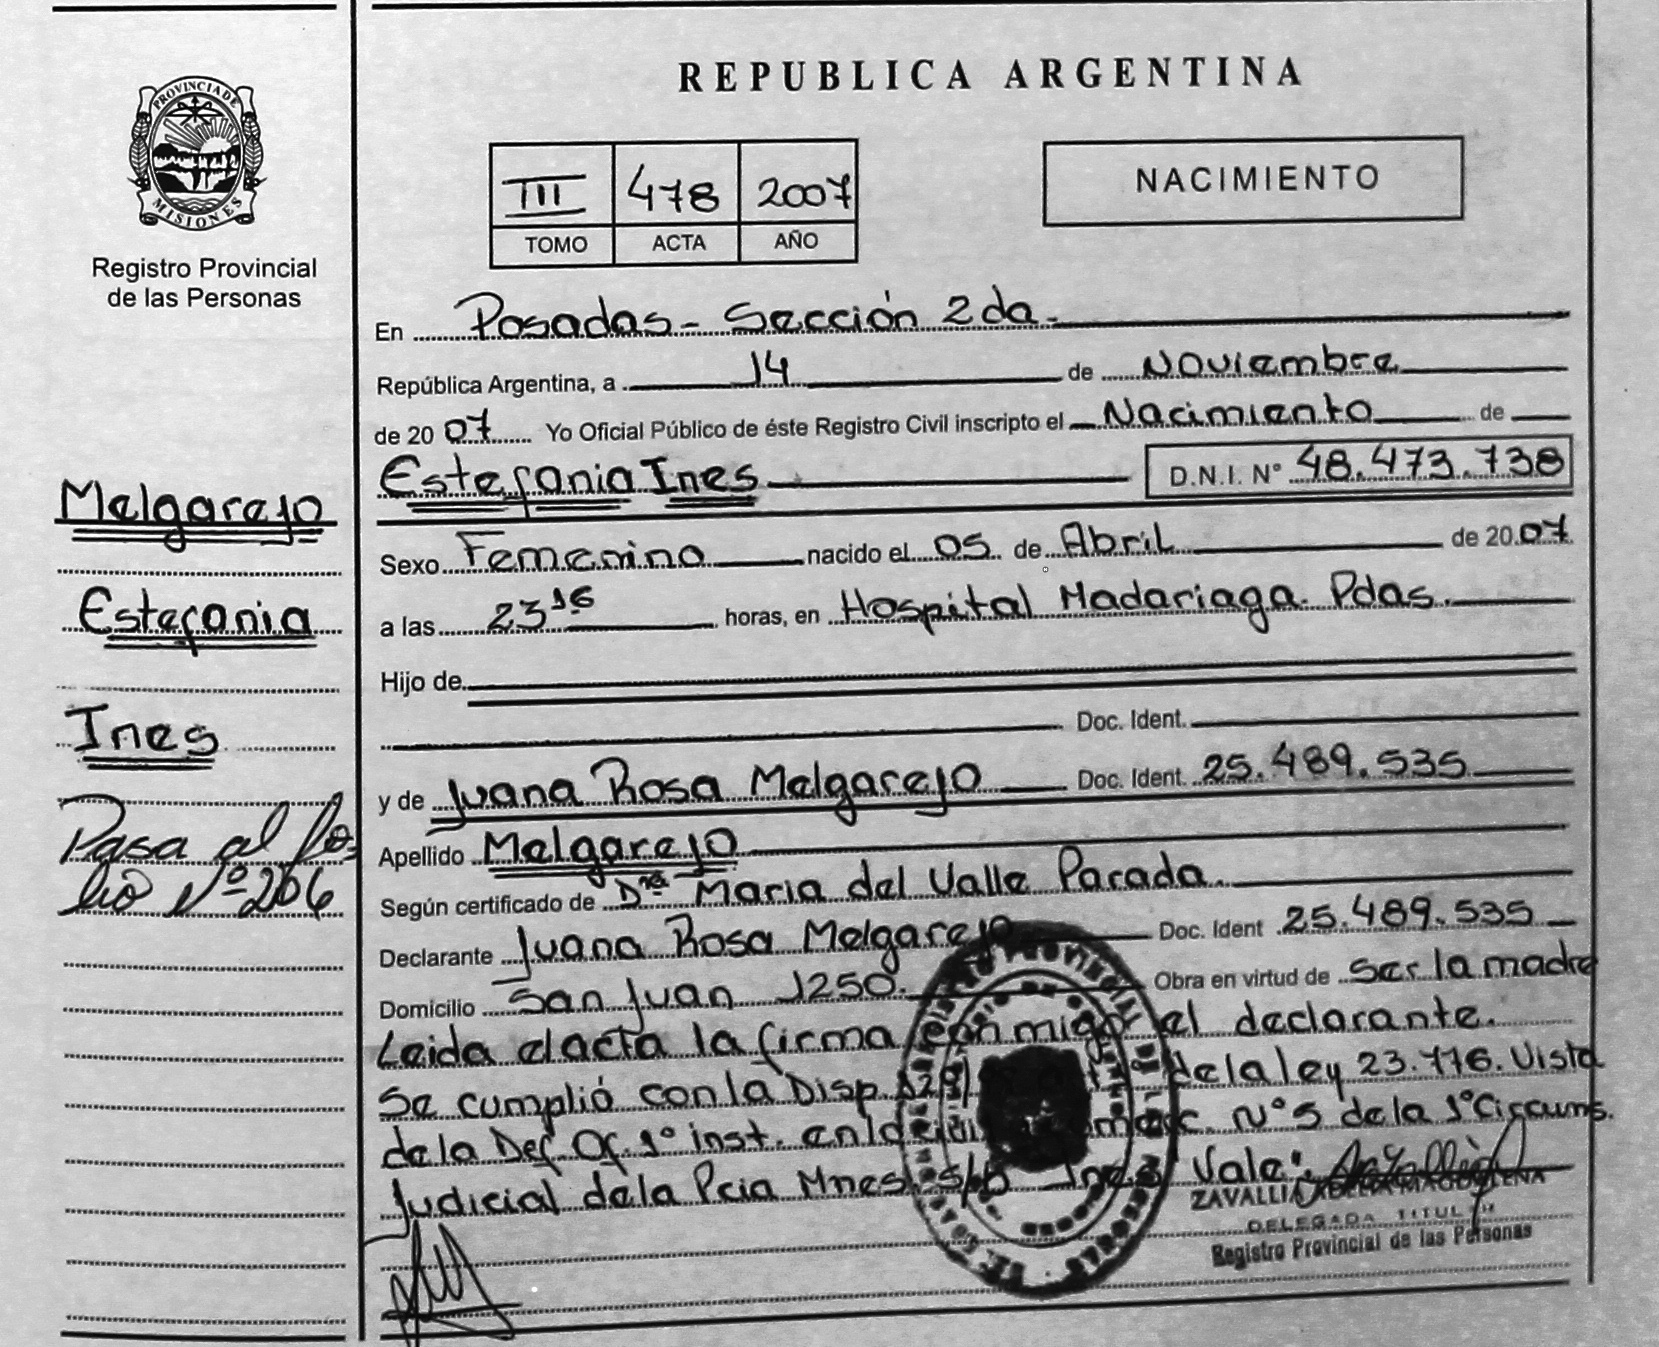 REPUBLICA ARGENTINA
PROVINCIA DE
MISIONES
Registro Provincial
de las Personas
III 478 2007
TOMO ACTA AÑO
NACIMIENTO
En Posadas - Sección 2da.
República Argentina, a 14 de Noviembre
de 2007 Yo Oficial Público de éste Registro Civil inscripto el Nacimiento de
Estefania Ines D.N.I. N° 48.473.738
Sexo Femenino nacido el 05 de Abril de 2007
a las 23 15 horas, en Hospital Madariaga. Pdas.
Hijo de
Doc. Ident.
y de Juana Rosa Melgarejo Doc. Ident. 25.489.535
Apellido Melgarejo
Según certificado de Dra Maria del Valle Parada.
Declarante Juana Rosa Melgarejo Doc. Ident 25.489.535
Domicilio San Juan 1250. Obra en virtud de ser la madre
Leida el acta la firma conmigo el declarante.
Se cumplió con la Disp. de la ley 23.776. Vista
de la Def. Of. 1° inst. N° 5 de la 1° Circuns.
Judicial de la Pcia Mnes. S/B Ines Vale:
ZAVALLIA
DELEGADA TITULAR
Registro Provincial de las Personas
Melgarejo
Estefania
Ines
Pasa al fo-
lio N° 206